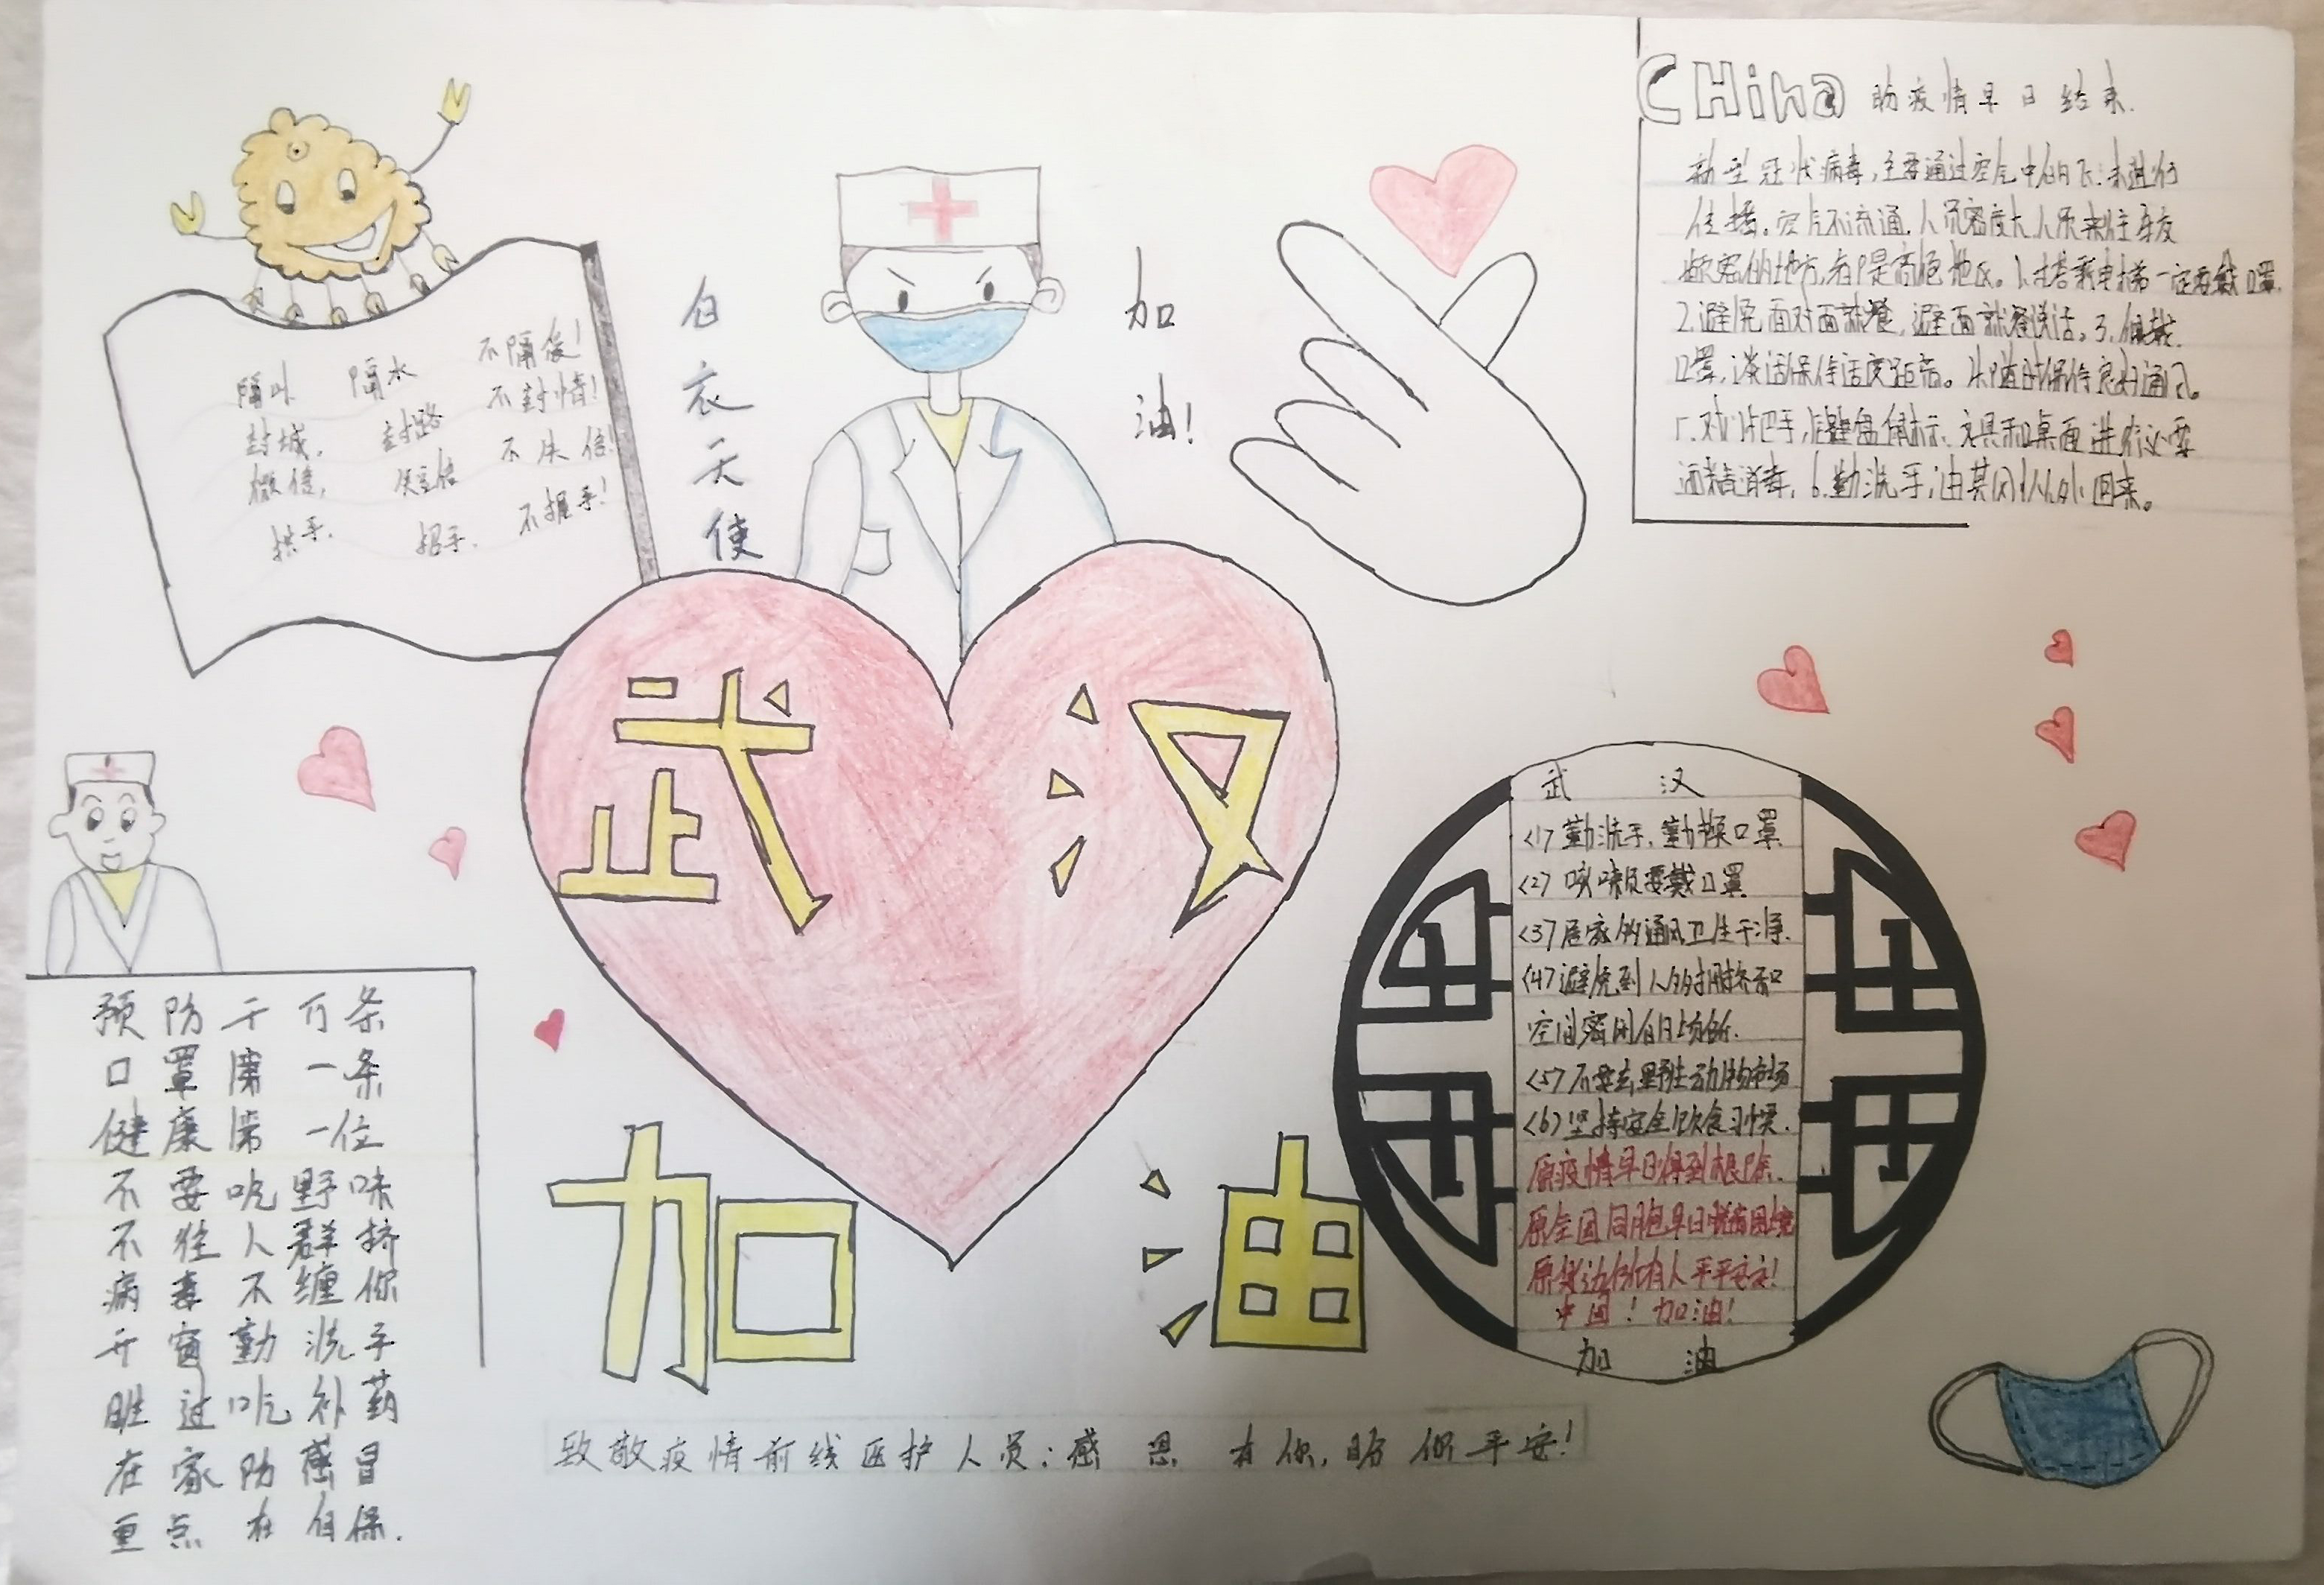 隔山 隔水 不隔侫!
封城, 封路 不封情!
微信, 不失信!
拱手. 招手. 不握手!
白衣天使
加油!
CHina 助疫情早日结束.
新型冠状病毒,主要通过空气中的飞沫进行
传播。空气不流通,人员密度大,人员来往
密的地方,都是高危地区。1.搭乘电梯一定要戴口罩.
2.避免面对面就餐,避面就餐说话。3.佩戴
口罩,谈话保持适度距离。4.随时保持良好通风。
5.对门把手,键盘鼠标、文具和桌面进行必要
酒精消毒, 6.勤洗手,尤其从外回来。
武汉
加油
武 汉
<1>勤洗手,勤换口罩
<2>咳嗽要戴口罩
<3>居家的通风卫生干净.
<4>避免到人多拥挤和
空间密闭的场所.
<5>不要去野生动物市场
<6>坚持安全饮食习惯.
原疫情早日得到根除.
原全国同胞早日脱离困境
原身边所有人平平安安!
中国!加油!
加 油
预防千万条
口罩第一条
健康第一位
不要吃野味
不往人群挤
病毒不缠你
开窗勤洗手
胜过吃补药
在家防感冒
重点在自保.
致敬疫情前线医护人员:感恩 有你,愿你平安!